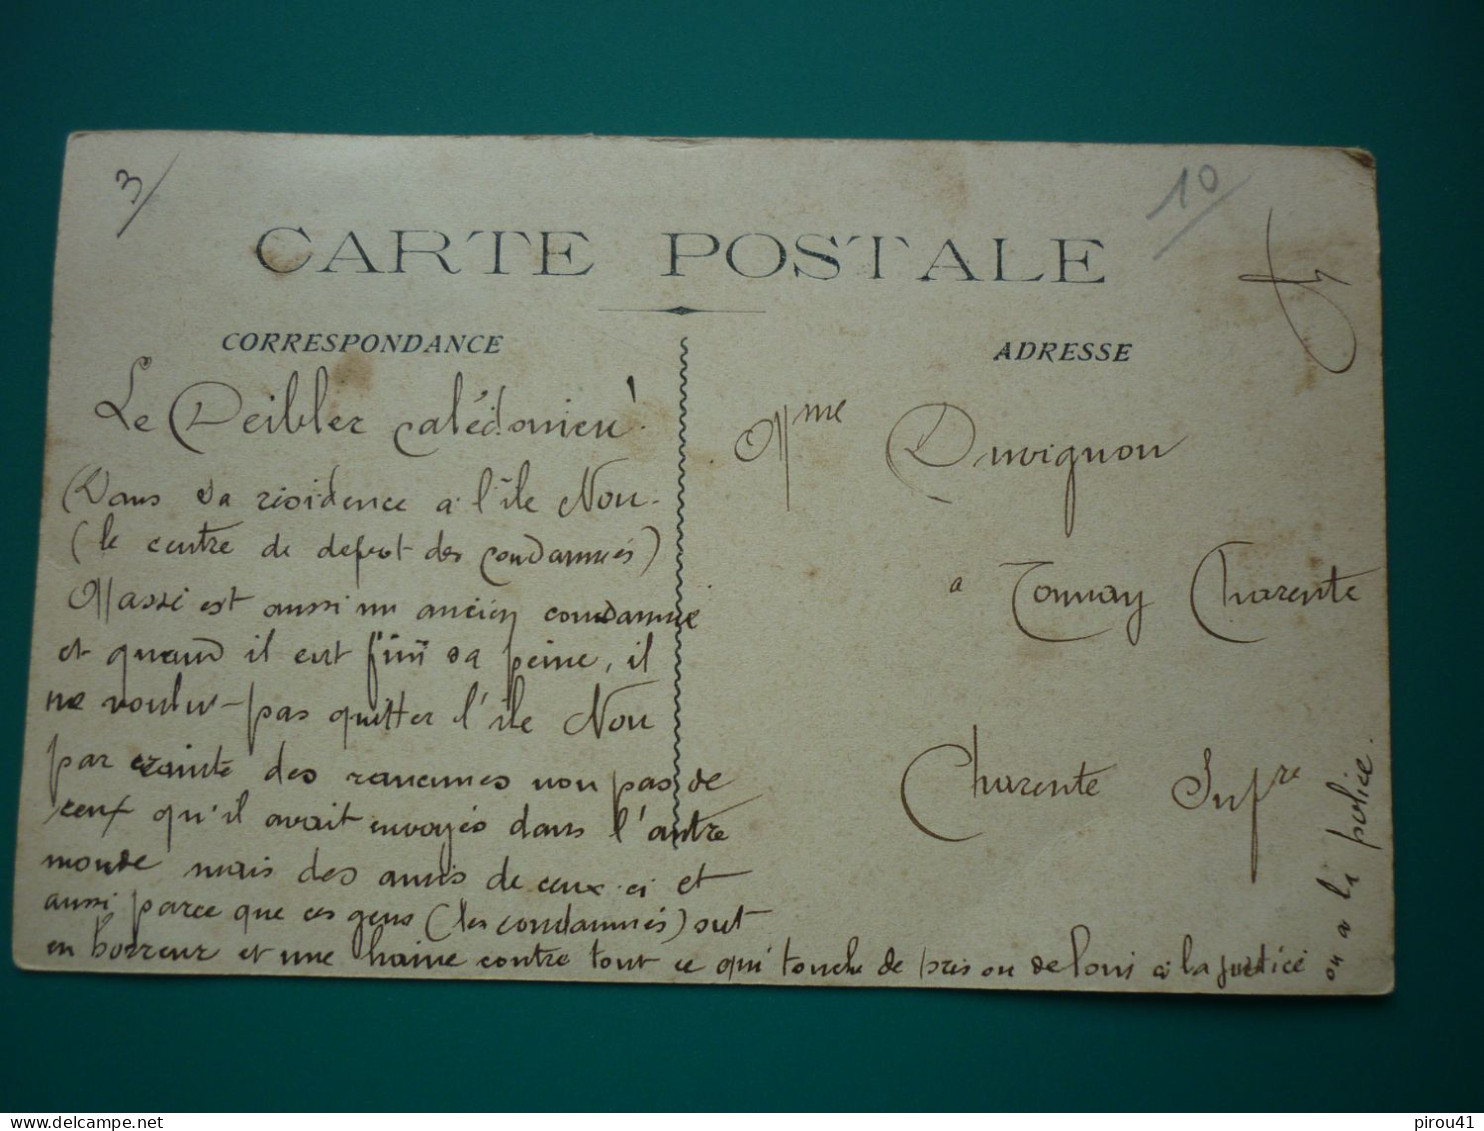 3/
10/
CARTE POSTALE
CORRESPONDANCE
ADRESSE
Le Deibler calédonien!
Dans sa residence a l'île Nou.
(le centre de depot des condamnés)
Massé est aussi un ancien condamné
et quand il eut fini sa peine, il
ne voulut pas quitter l'île Nou
par crainte des rancunes non pas de
ceux qu'il avait envoyés dans l'autre
monde mais des amis de ceux-ci et
aussi parce que ces gens (les condamnés) ont
en horreur et une haine contre tout ce qui touche de pres ou de loin à la justice
ou a la police.
Mme Duvignon
a Tonnay Charente
Charente Infre
pirou41